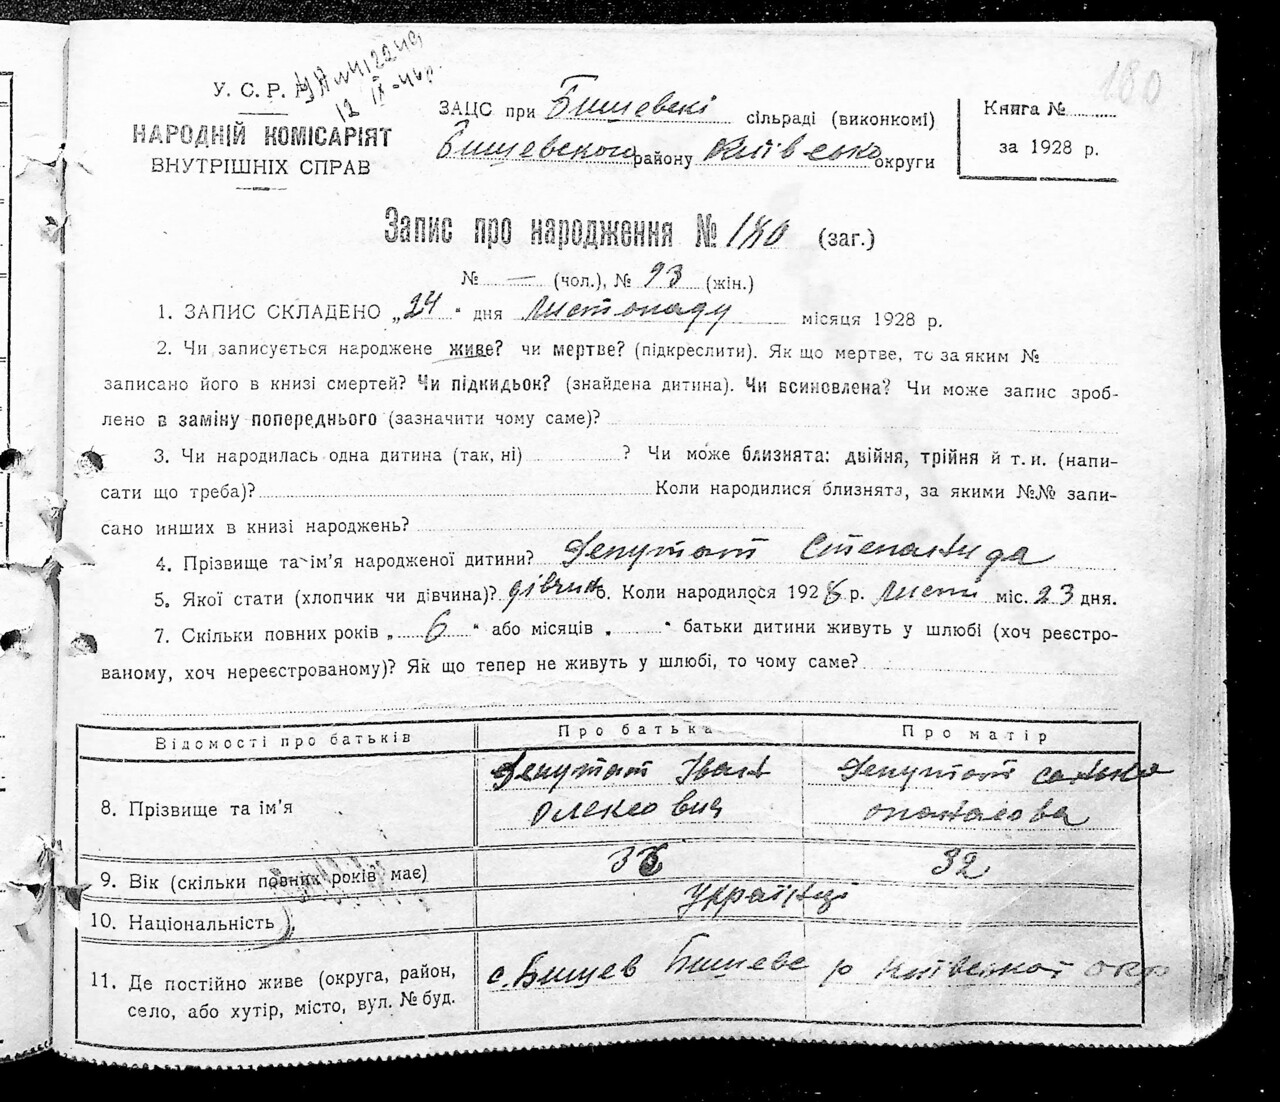 180
У. С. Р.
12 IX-46р.
НАРОДНІЙ КОМІСАРІЯТ
ВНУТРІШНІХ СПРАВ
ЗАЦС при Бишевскі сільраді (виконкомі)
Бишевского району Київсько округи
Книга №
за 1928 р.
Запис про народження № 180 (заг.)
№ — (чол.), № 93 (жін.)
1. ЗАПИС СКЛАДЕНО „24" дня листопаду місяця 1928 р.
2. Чи записується народжене живе? чи мертве? (підкреслити). Як що мертве, то за яким №
записано його в книзі смертей? Чи підкидьок? (знайдена дитина). Чи всиновлена? Чи може запис зроб-
лено в заміну попереднього (зазначити чому саме)?
3. Чи народилась одна дитина (так, ні) ? Чи може близнята: двійня, трійня й т. и. (напи-
сати що треба)? Коли народилися близнята, за якими №№ запи-
сано инших в книзі народжень?
4. Прізвище та ім'я народженої дитини? Депутат Степанида
5. Якої стати (хлопчик чи дівчина)? дівчин 6. Коли народилося 1928 р. листі міс. 23 дня.
7. Скільки повних років „ 6 " або місяців „ " батьки дитини живуть у шлюбі (хоч реєстро-
ваному, хоч нереєстрованому)? Як що тепер не живуть у шлюбі, то чому саме?
Відомості про батьків
Про батька
Про матір
8. Прізвище та ім'я
Депутат Іван
Олексович
Депутат
9. Вік (скільки повних років має)
32
10. Національність
Українці
11. Де постійно живе (округа, район,
село, або хутір, місто, вул. № буд.
с. Бишев Бишевс р Київської окр